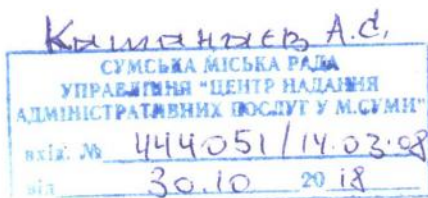 А.С.
СУМСЬКА МІСЬКА РАДА
УПРАВЛІННЯ "ЦЕНТР НАДАННЯ
АДМІНІСТРАТИВНИХ ПОСЛУГ У М.СУМИ"
вхід. № 444051/14.03-08
від 30.10 20 18